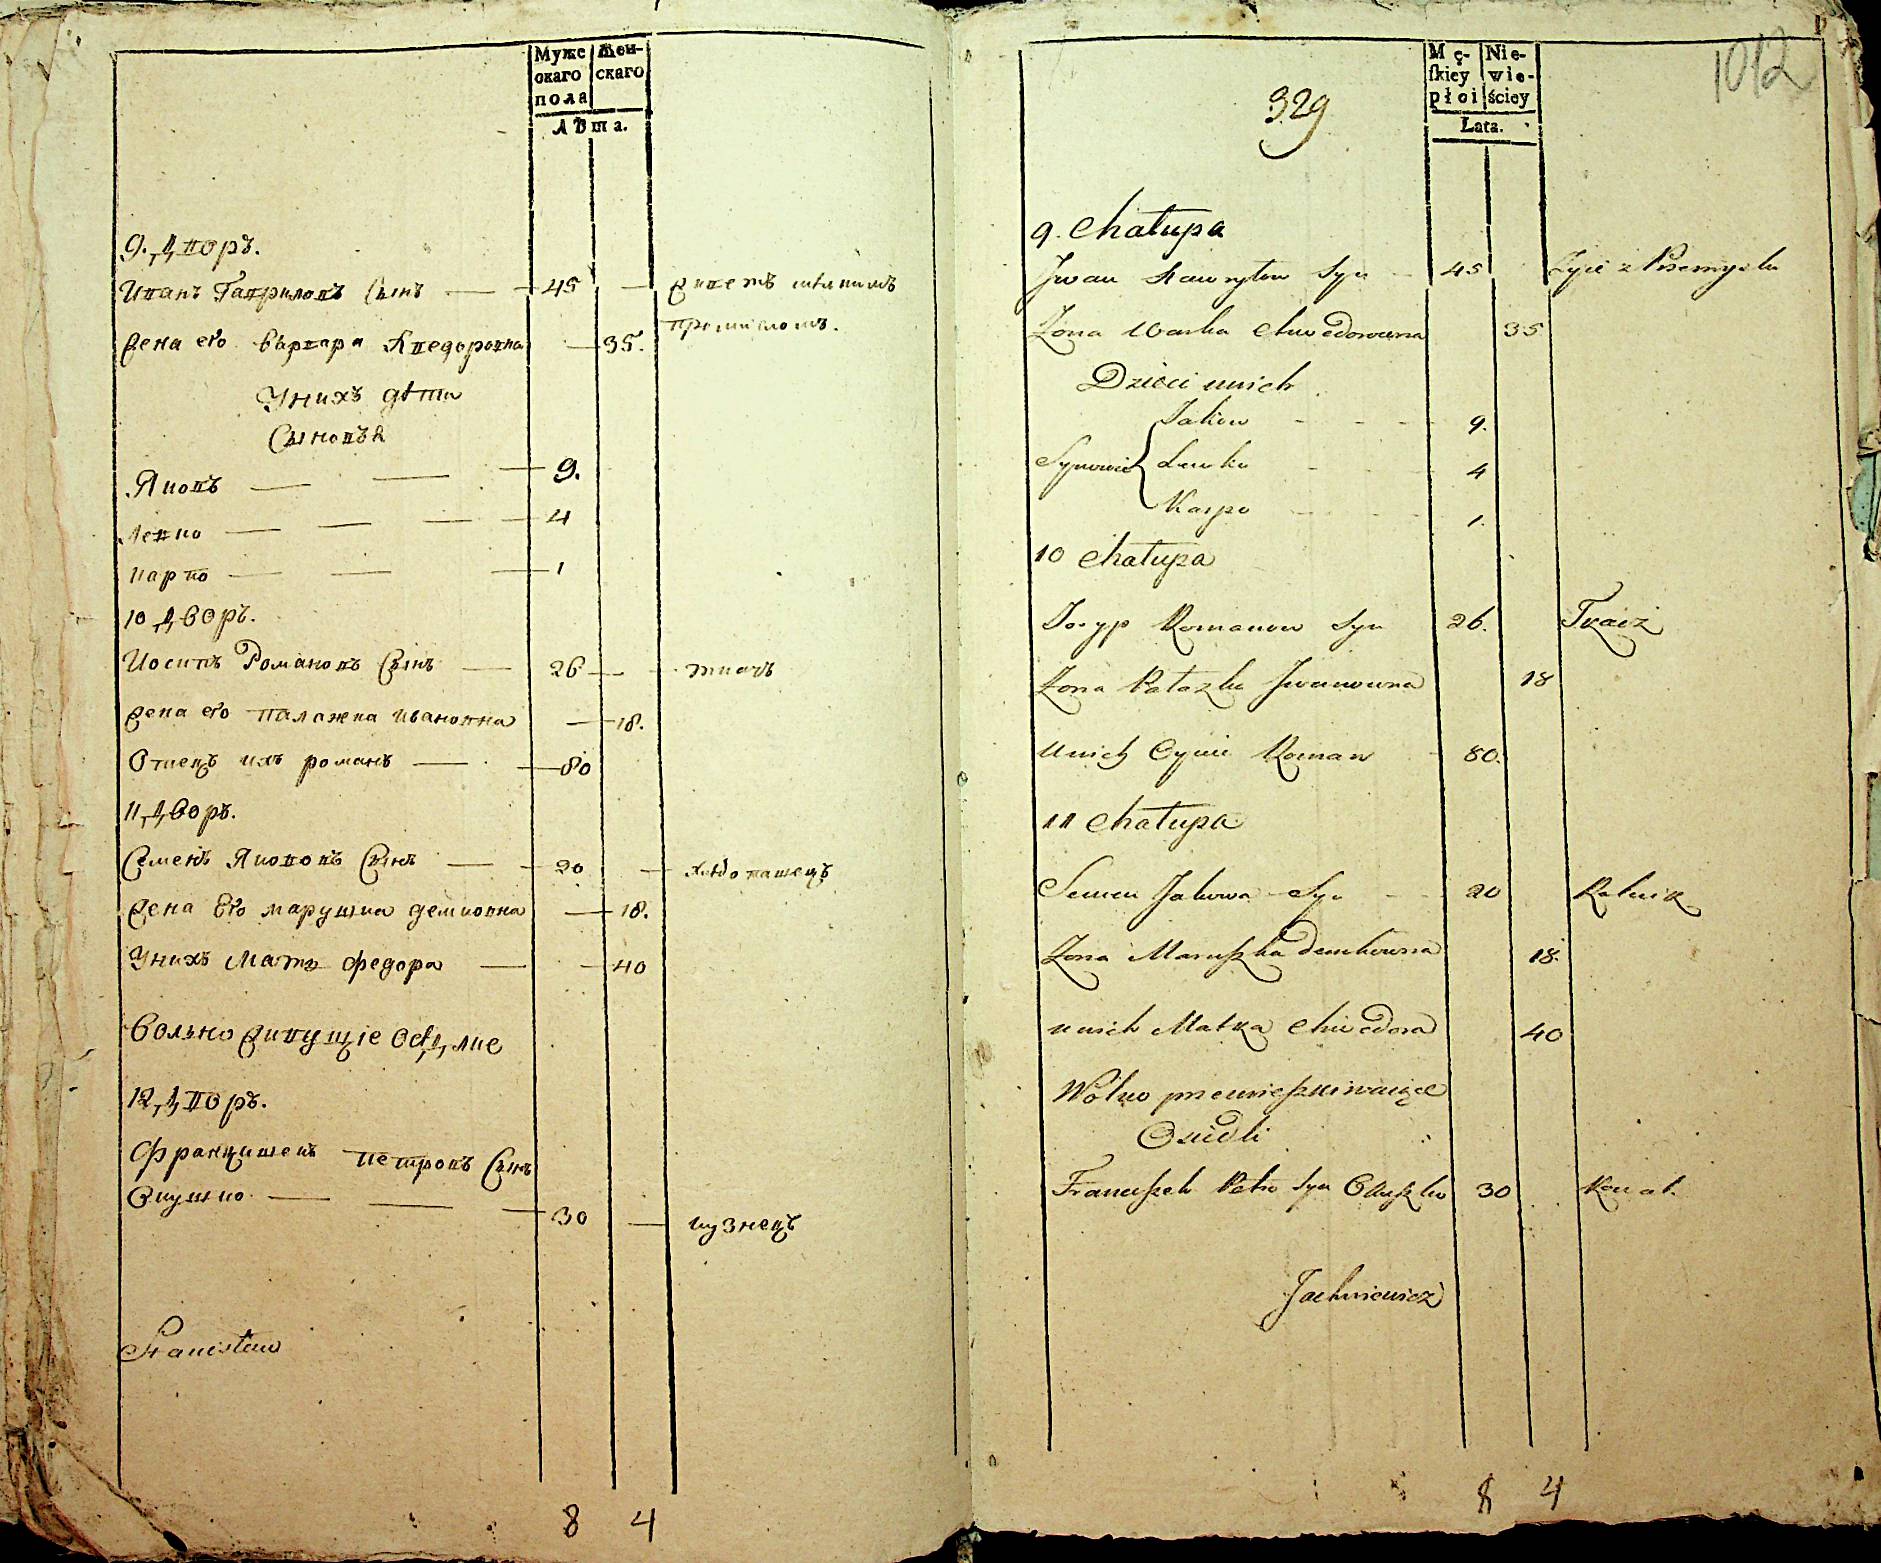 Муже Жен-
скаго скаго
пола
Лѣта.
9. Дворъ.
Иванъ Гавриловъ Сынъ — 45 — живетъ
промысломъ.
Жена его Варвара Хведоровна — 35.
У нихъ дѣти
Сыновья
Яковъ — 9.
Левко — 4
Карпо — 1
10 Дворъ.
Иосипъ Романовъ Сынъ — 26 — ткачъ
Жена его Палажка Ивановна — 18.
Отецъ ихъ Романъ — 80
11 Дворъ.
Семенъ Якововъ Сынъ — 20 — хлѣбопашецъ
Жена Его Марушка Демковна — 18.
У нихъ Мать Федора — 40
Вольно живущіе Осѣдлие
12 Дворъ.
Францишекъ Петровъ Сынъ
— 30 — кузнецъ
Stanisław
8 4
1012
329
Mę- Nie-
skiey wie-
płci ściey
Lata.
9. Chałupa
Jwan Hawryłow Syn - 45 Żyie z Przemysłu
Żona Warka Chwedorowna 35
Dzieci unich
Jakow - - - 9.
Synowie Lewko - - 4
Karpo - - - 1.
10 Chałupa
Josyp Romanow Syn 26. Tkacz
Żona Pałazka Jwanowna 18
Unich Oyciec Roman 80.
11 Chałupa
Semen Jakowa Syn - 20 Rolnik
Żona Maruszka Demkowna 18.
unich Matka Chwedora 40
Wolno przemieszkiwaiące
Osiedli
Franciszek Petro Syn 30 Kowal.
Jachniewicz
8 4